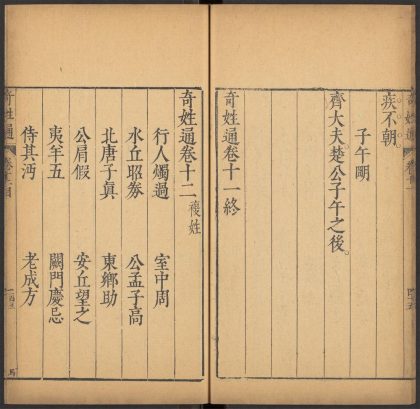 疾不朝。
子午䎽
齊大夫楚公子午之後。
奇姓通卷十一終
奇姓通卷十二 複姓
行人燭過 室中周
水丘昭券 公孟子高
北唐子真 東鄉助
公肩假 安丘望之
夷羊五 關門慶忌
侍其沔 老成方
奇姓通